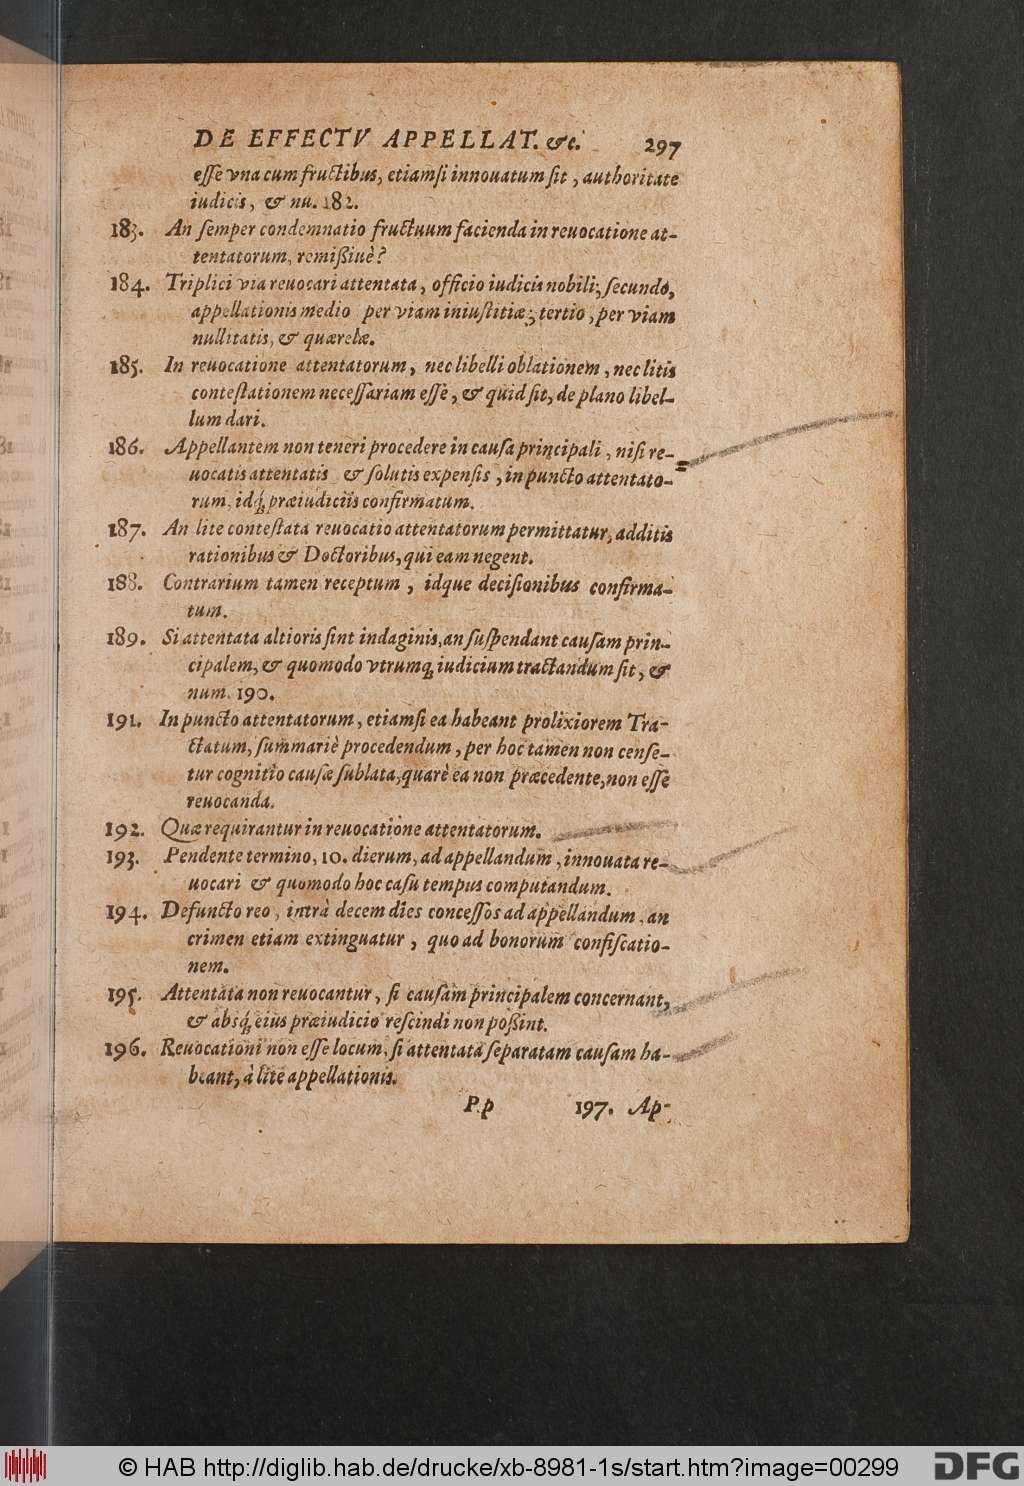 DE EFFECTV APPELLAT. &c. 297
eſſe vna cum fructibus, etiamſi innouatum ſit, authoritate
iudicis, & nu. 182.
183. An ſemper condemnatio fructuum facienda in reuocatione at-
tentatorum, remißiuè?
184. Triplici via reuocari attentata, officio iudicis nobili; ſecundò,
appellationis medio per viam iniuſtitiæ; tertio, per viam
nullitatis, & quærelæ.
185. In reuocatione attentatorum, nec libelli oblationem, nec litis
conteſtationem neceſſariam eſſe, & quid ſit, de plano libel-
lum dari.
186. Appellantem non teneri procedere in cauſa principali, niſi re-
uocatis attentatis & ſolutis expenſis, in puncto attentato-
rum, idq́; præiudiciis confirmatum.
187. An lite conteſtata reuocatio attentatorum permittatur, additis
rationibus & Doctoribus, qui eam negent.
188. Contrarium tamen receptum, idque deciſionibus confirma-
tum.
189. Si attentata altioris ſint indaginis, an ſuſpendant cauſam prin-
cipalem, & quomodo vtrumq; iudicium tractandum ſit, &
num. 190.
191. In puncto attentatorum, etiamſi ea habeant prolixiorem Tra-
ctatum, ſummariè procedendum, per hoc tamen non cenſe-
tur cognitio cauſæ ſublata, quarè ea non præcedente, non eſſe
reuocanda.
192. Quæ requirantur in reuocatione attentatorum.
193. Pendente termino, 10. dierum, ad appellandum, innouata re-
uocari & quomodo hoc caſu tempus computandum.
194. Defuncto reo, intrà decem dies conceſſos ad appellandum, an
crimen etiam extinguatur, quo ad bonorum confiſcatio-
nem.
195. Attentata non reuocantur, ſi cauſam principalem concernant,
& absq́; eius præiudicio reſcindi non poßint.
196. Reuocationi non eſſe locum, ſi attentata ſeparatam cauſam ha-
beant, à lite appellationis.
Pp 197. Ap-
© HAB http://diglib.hab.de/drucke/xb-8981-1s/start.htm?image=00299
DFG